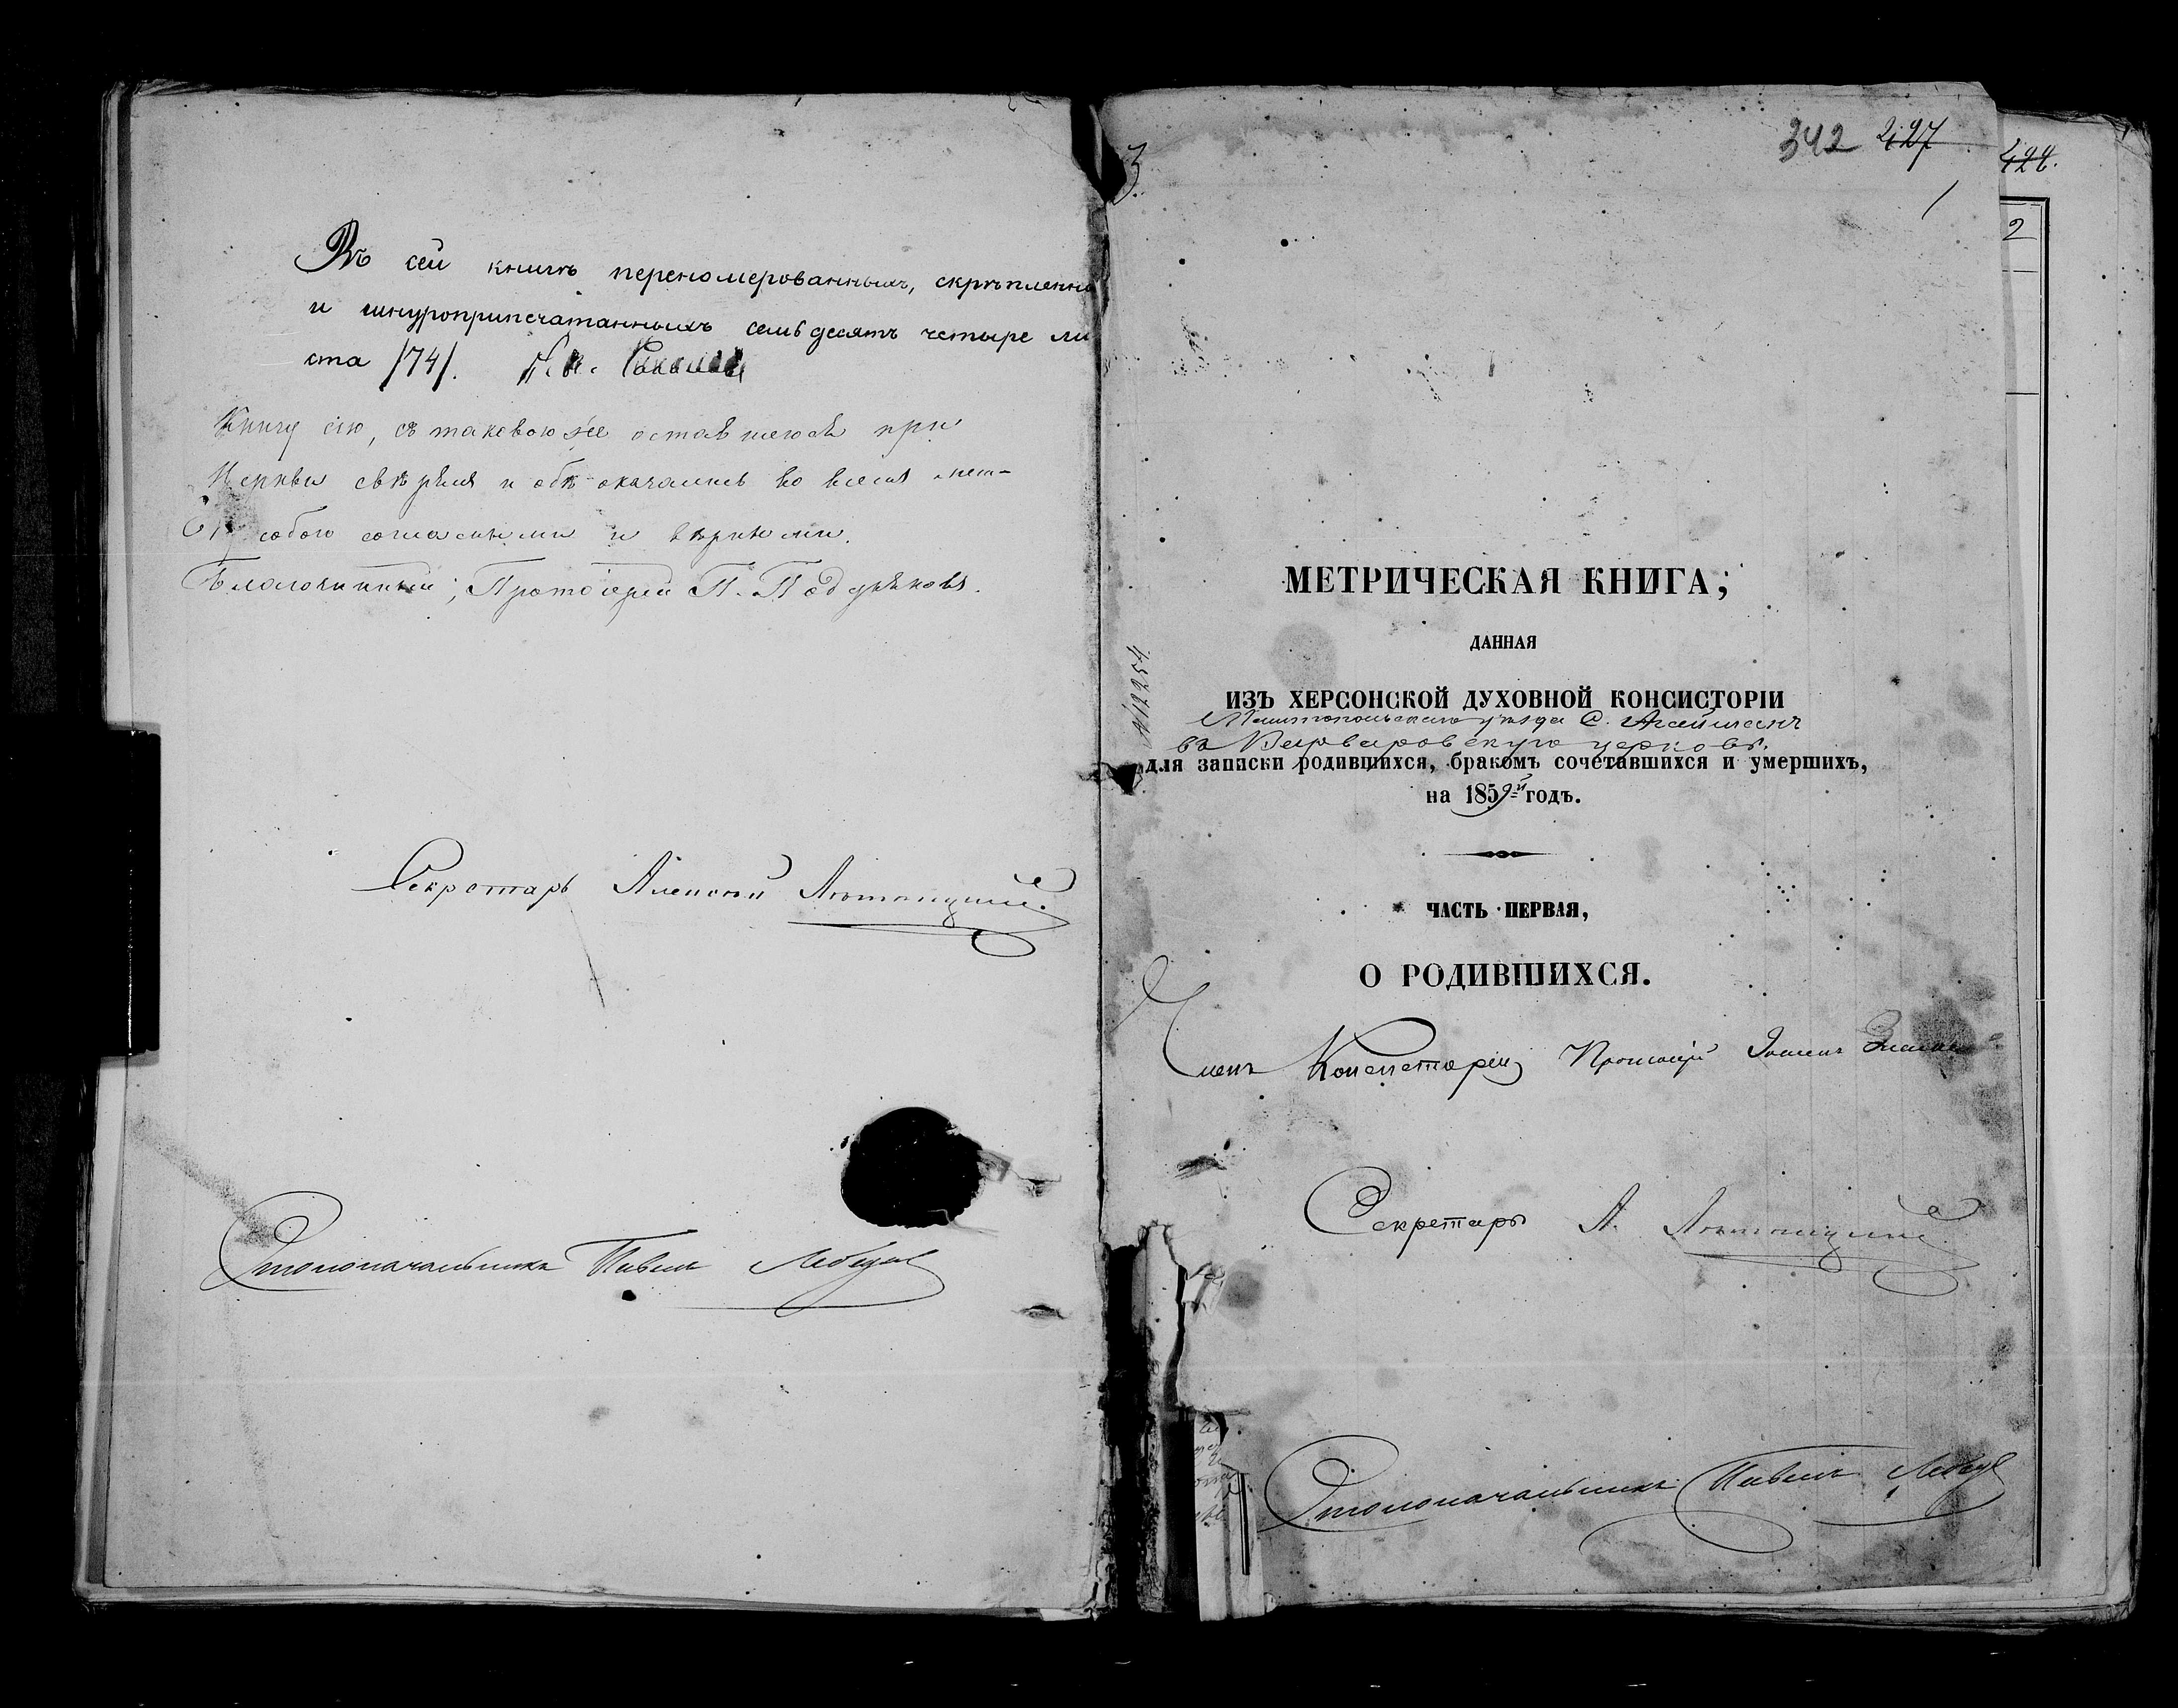 Въ сей книгѣ перенομерованныхъ, скрѣпленны
и шнуроприпечатанныхъ семьдесятъ четыре ли
ста /74/.
Книгу сію, съ таковою же оставшеюся при
Церкви свѣрялъ и обѣ оказались во всемъ меж-
ду собою согласными и вѣрными.
Благочинный, Протоіерей П.
Секретарь Алексѣй
Столоначальникъ Павелъ Лебедев
342 427
1
428.
2
3
№ 12254.
МЕТРИЧЕСКАЯ КНИГА,
ДАННАЯ
ИЗЪ ХЕРСОНСКОЙ ДУХОВНОЙ КОНСИСТОРІИ
Мелитопольскаго уѣзда С. Агайманъ
въ Варваровскую церковь.
для записки родившихся, бракомъ сочетавшихся и умершихъ,
на 1859й годъ.
ЧАСТЬ ПЕРВАЯ,
О РОДИВШИХСЯ.
Членъ Консисторіи Протоіерей Іоаннъ
Секретарь А.
Столоначальникъ Павелъ Лебедев